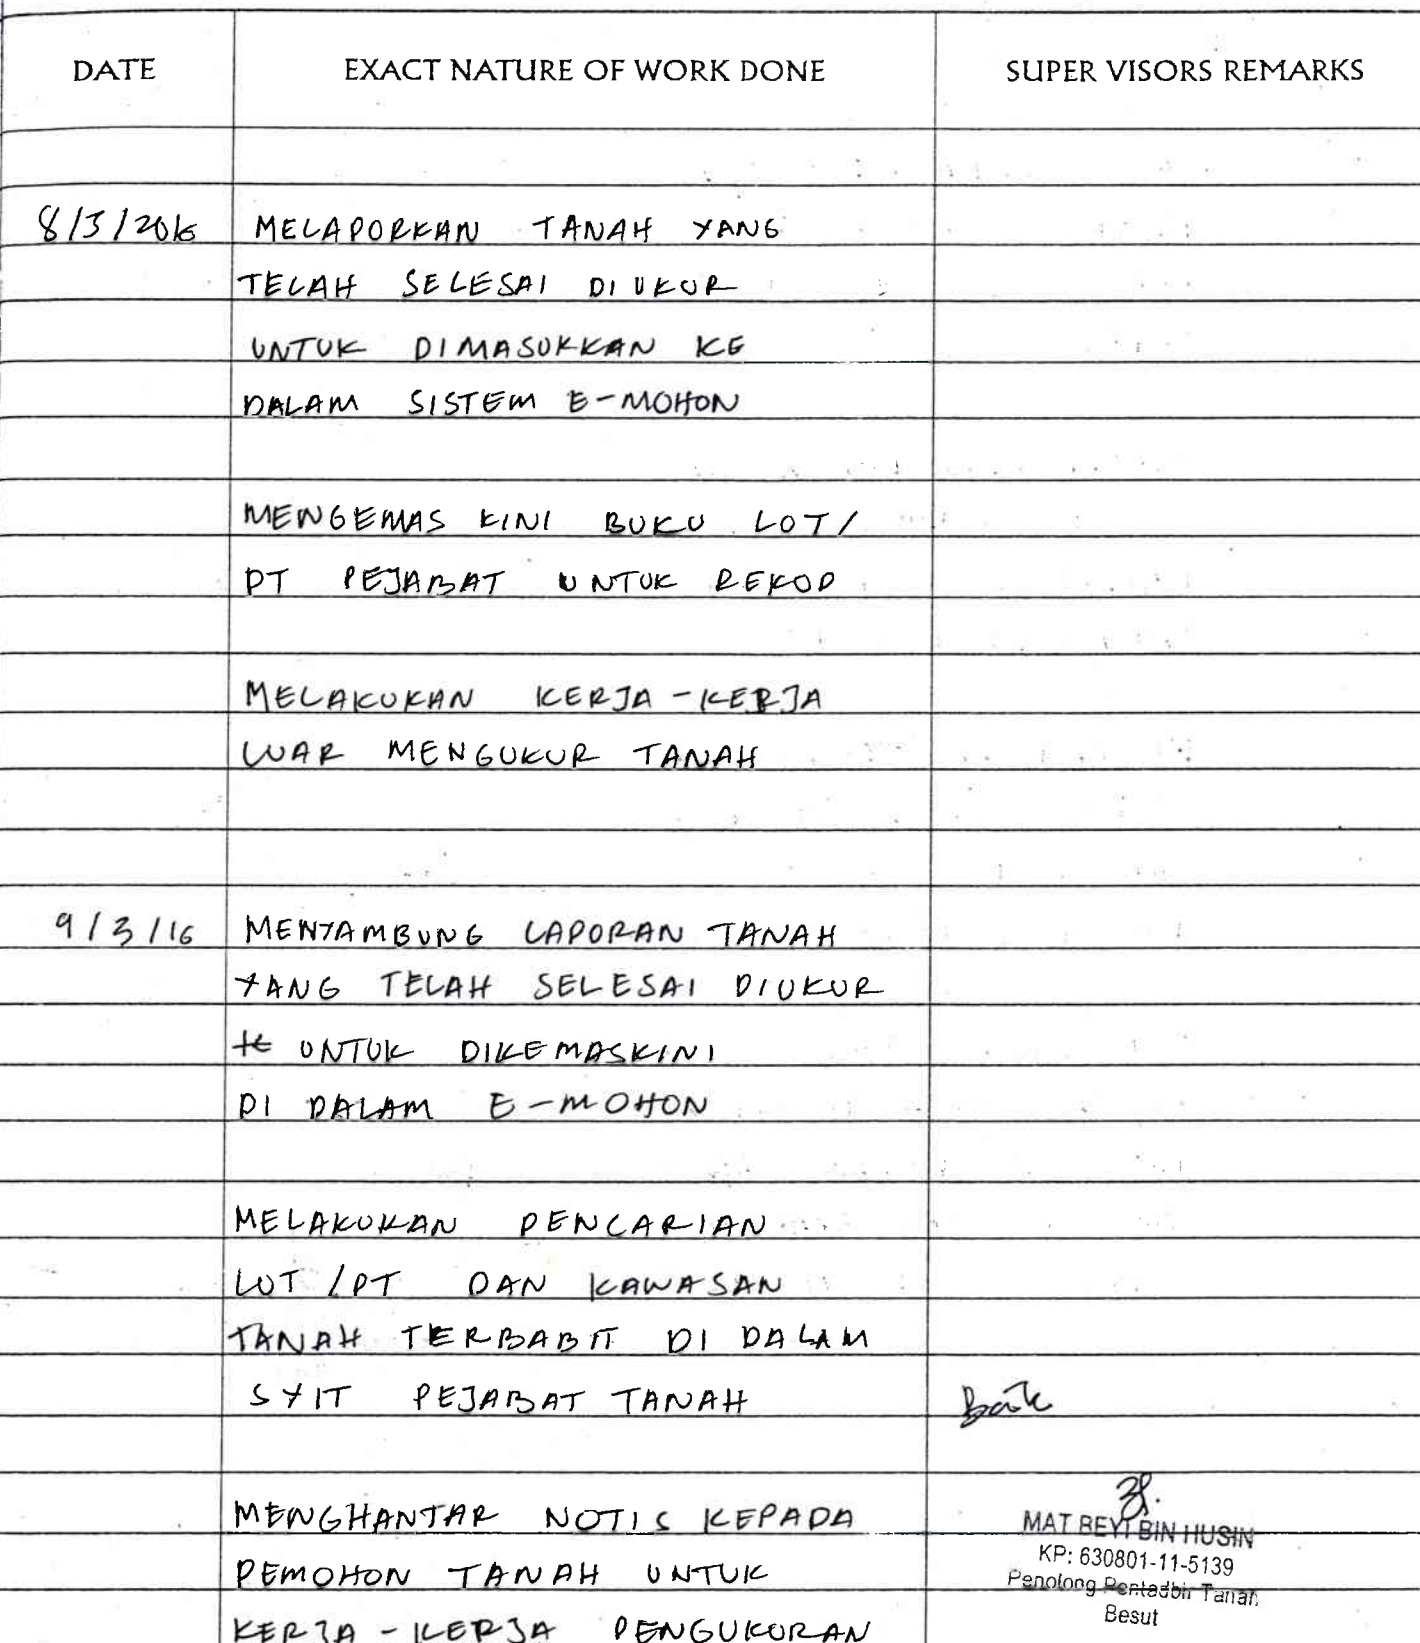 DATE EXACT NATURE OF WORK DONE SUPER VISORS REMARKS
8/3/2016 MELAPORKAN TANAH YANG
TELAH SELESAI DIUKUR
UNTUK DIMASUKKAN KE
DALAM SISTEM E-MOHON
MENGEMAS KINI BUKU LOT/
PT PEJABAT UNTUK REKOD
MELAKUKAN KERJA-KERJA
LUAR MENGUKUR TANAH
9/3/16 MENYAMBUNG LAPORAN TANAH
YANG TELAH SELESAI DIUKUR
UNTUK DIKEMASKINI
DI DALAM E-MOHON
MELAKUKAN PENCARIAN
LOT/PT DAN KAWASAN
TANAH TERBABIT DI DALAM
SYIT PEJABAT TANAH Baik
MENGHANTAR NOTIS KEPADA MAT REYI BIN HUSIN
KP: 630801-11-5139
PEMOHON TANAH UNTUK Penolong Pentadbir Tanah
Besut
KERJA-KERJA PENGUKURAN